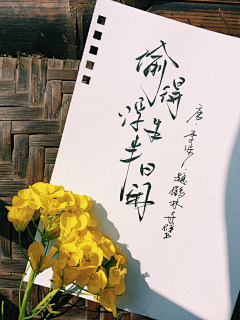 偷得
浮生
半日闲
唐 李涉《题鹤林寺僧舍》